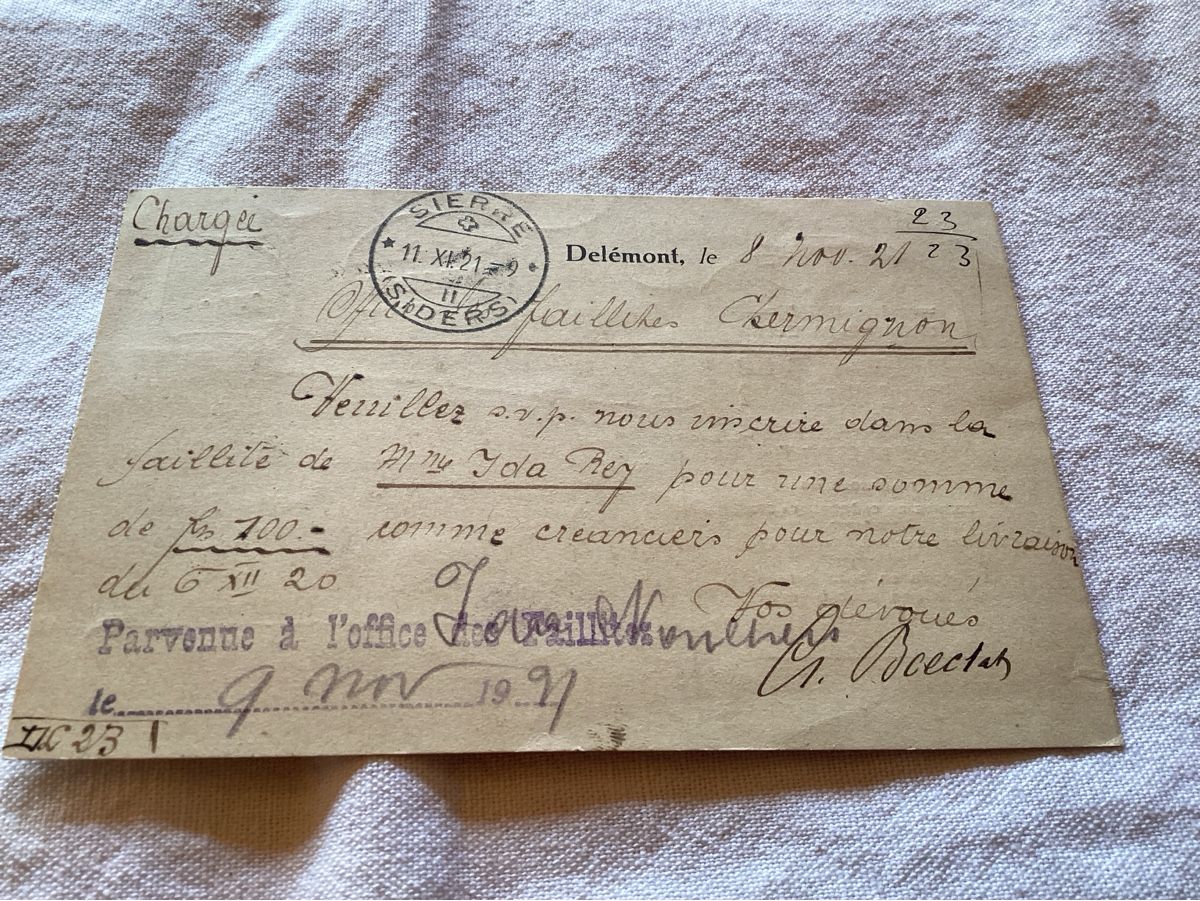 Chargée
SIERRE
11. XI. 21 - 9
II
(SIDERS)
23
23
Delémont, le 8 Nov. 21
faillites Chermignon
Veuillez s.v.p. nous inscrire dans la
faillite de Mme Ida Rey pour une somme
de frs 100.- comme creanciers pour notre livraison
du 6 XII 20
Vos dévoués
Parvenue à l'office des Faillites
le 9 Nov 1921
23